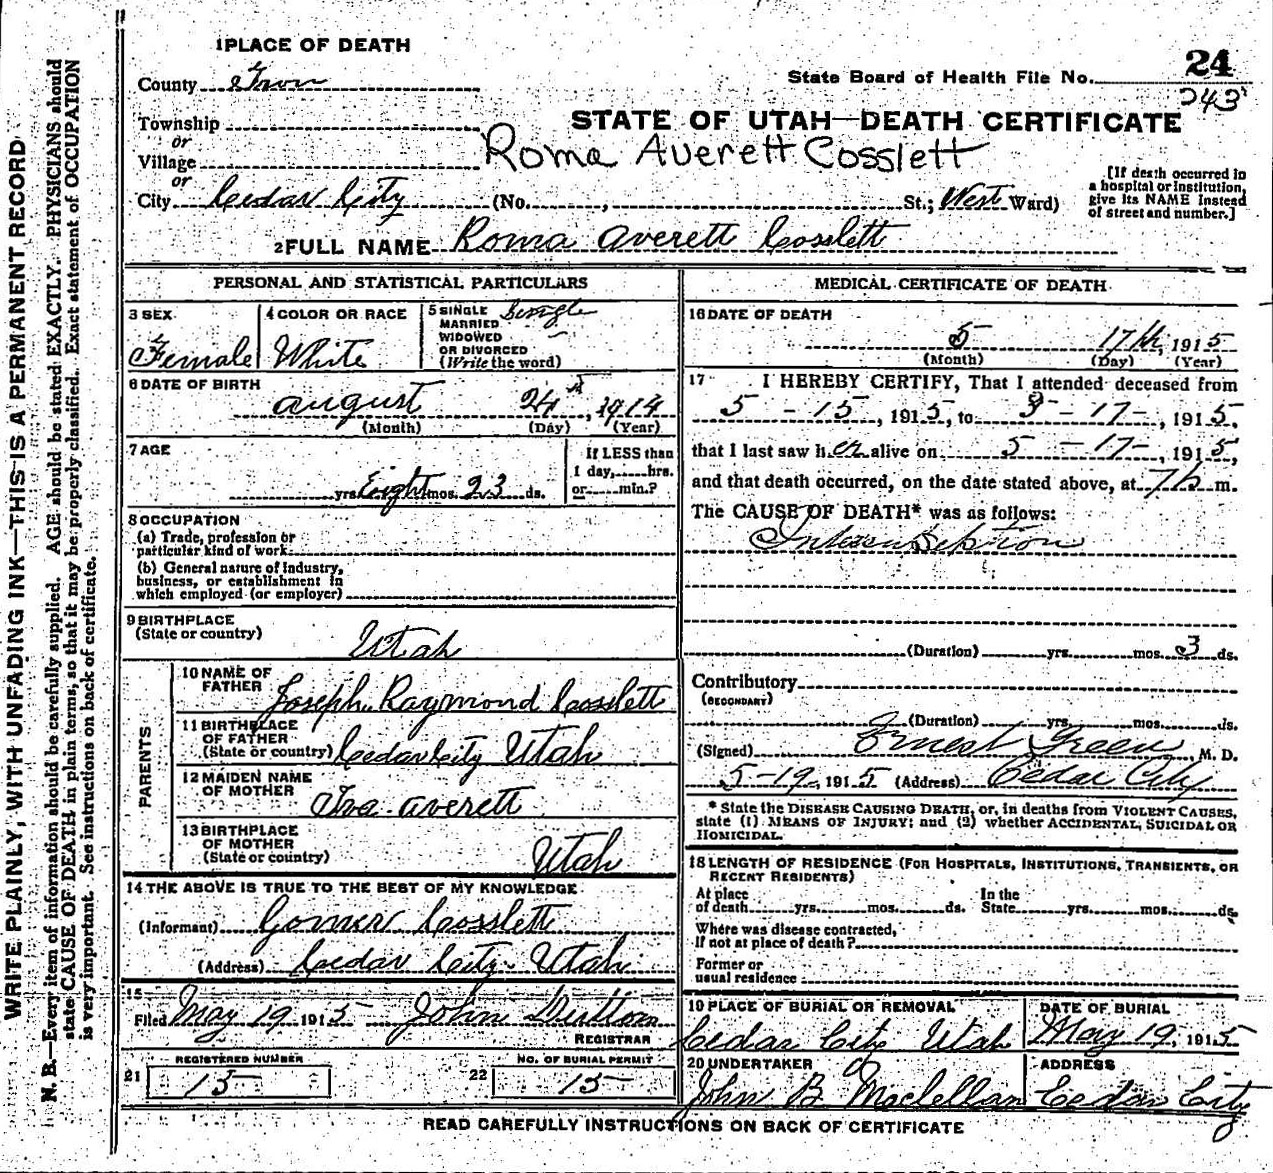 WRITE PLAINLY, WITH UNFADING INK—THIS IS A PERMANENT RECORD
N. B.—Every item of information should be carefully supplied. AGE should be stated EXACTLY. PHYSICIANS should
state CAUSE OF DEATH in plain terms, so that it may be properly classified. Exact statement of OCCUPATION
is very important. See instructions on back of certificate.
1 PLACE OF DEATH
County Iron
Township
or
Village
or
City Cedar City (No. , St.; West Ward)
State Board of Health File No. 24
243
STATE OF UTAH—DEATH CERTIFICATE
Roma Averett Cosslett
[If death occurred in
a hospital or institution,
give its NAME instead
of street and number.]
2 FULL NAME Roma Averett Cosslett
PERSONAL AND STATISTICAL PARTICULARS
3 SEX
Female
4 COLOR OR RACE
White
5 SINGLE Single
MARRIED
WIDOWED
OR DIVORCED
(Write the word)
6 DATE OF BIRTH
August 24th, 1914
(Month) (Day) (Year)
7 AGE
yrs. Eight mos. 23 ds.
If LESS than
1 day, hrs.
or min.?
8 OCCUPATION
(a) Trade, profession or
particular kind of work
(b) General nature of industry,
business, or establishment in
which employed (or employer)
9 BIRTHPLACE
(State or country)
Utah
PARENTS
10 NAME OF
FATHER Joseph Raymond Cosslett
11 BIRTHPLACE
OF FATHER
(State or country) Cedar City Utah
12 MAIDEN NAME
OF MOTHER
Iva Averett
13 BIRTHPLACE
OF MOTHER
(State or country)
Utah
14 THE ABOVE IS TRUE TO THE BEST OF MY KNOWLEDGE
(Informant) Gomer Cosslett
(Address) Cedar City Utah
15
Filed May 19 1915 John
REGISTRAR
REGISTERED NUMBER
21 15
NO. OF BURIAL PERMIT
22 15
MEDICAL CERTIFICATE OF DEATH
16 DATE OF DEATH
5 17th, 1915
(Month) (Day) (Year)
17 I HEREBY CERTIFY, That I attended deceased from
5 - 15, 1915, to - 17 -, 1915,
that I last saw her alive on 5 - 17 -, 1915,
and that death occurred, on the date stated above, at m.
The CAUSE OF DEATH* was as follows:
(Duration) yrs. mos. 3 ds.
Contributory
(SECONDARY)
(Duration) yrs. mos. ds.
(Signed) Ernest Green, M. D.
5-19, 1915 (Address) Cedar City
* State the DISEASE CAUSING DEATH, or, in deaths from VIOLENT CAUSES,
state (1) MEANS OF INJURY; and (2) whether ACCIDENTAL, SUICIDAL OR
HOMICIDAL.
18 LENGTH OF RESIDENCE (FOR HOSPITALS, INSTITUTIONS, TRANSIENTS, OR
RECENT RESIDENTS)
At place
of death yrs. mos. ds.
In the
State yrs. mos. ds.
Where was disease contracted,
if not at place of death?
Former or
usual residence
19 PLACE OF BURIAL OR REMOVAL
Cedar City Utah
DATE OF BURIAL
May 19, 1915
20 UNDERTAKER
John B Maclellan
ADDRESS
Cedar City
READ CAREFULLY INSTRUCTIONS ON BACK OF CERTIFICATE